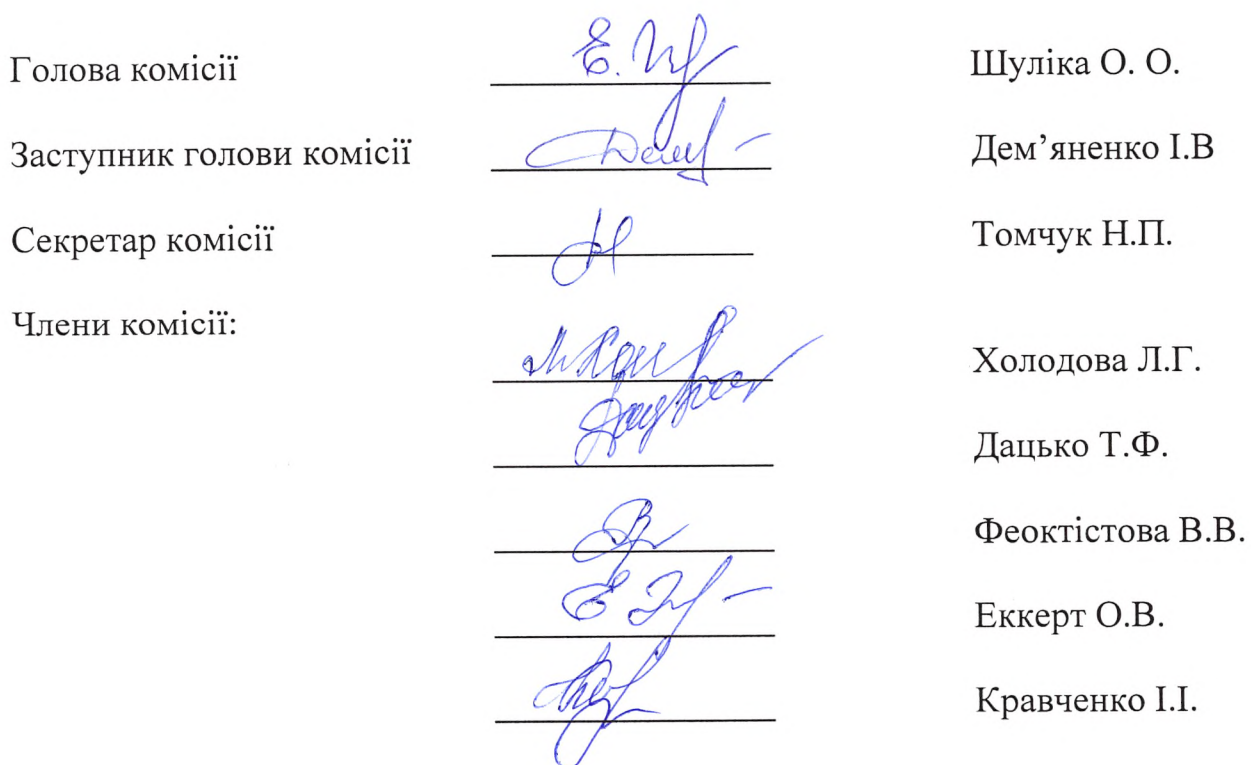 Голова комісії Шуліка О. О.
Заступник голови комісії Дем’яненко І.В
Секретар комісії Томчук Н.П.
Члени комісії:
Холодова Л.Г.
Дацько Т.Ф.
Феоктістова В.В.
Еккерт О.В.
Кравченко І.І.